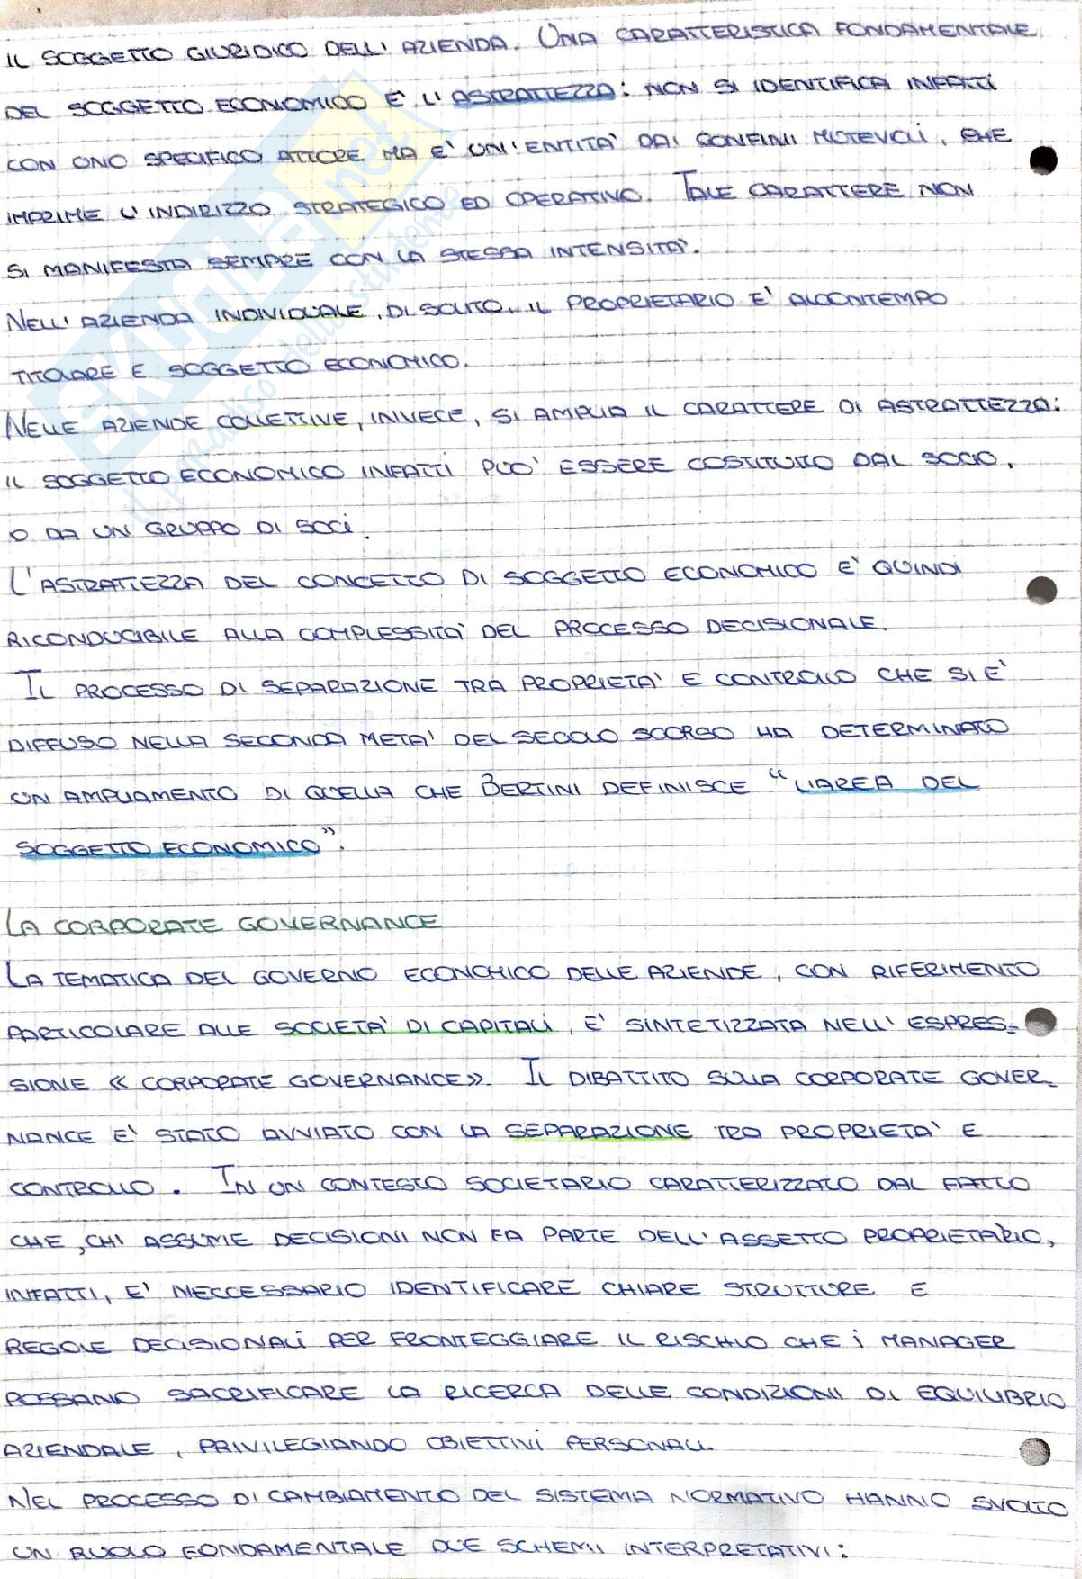 IL SOGGETTO GIURIDICO DELL'AZIENDA. UNA CARATTERISTICA FONDAMENTALE
DEL SOGGETTO ECONOMICO E' L'ASTRATTEZZA: NON SI IDENTIFICA INFATTI
CON UNO SPECIFICO ATTORE MA E' UN'ENTITA' DAI CONFINI MUTEVOLI, CHE
IMPRIME L'INDIRIZZO STRATEGICO ED OPERATIVO. TALE CARATTERE NON
SI MANIFESTA SEMPRE CON LA STESSA INTENSITA'.
NELL'AZIENDA INDIVIDUALE, DI SOLITO, IL PROPRIETARIO E' ALCONTEMPO
TITOLARE E SOGGETTO ECONOMICO.
NELLE AZIENDE COLLETTIVE, INVECE, SI AMPLIA IL CARATTERE DI ASTRATTEZZA:
IL SOGGETTO ECONOMICO INFATTI PUO' ESSERE COSTITUITO DAL SOCIO,
O DA UN GRUPPO DI SOCI.
L'ASTRATTEZZA DEL CONCETTO DI SOGGETTO ECONOMICO E' QUINDI
RICONDUCIBILE ALLA COMPLESSITA' DEL PROCESSO DECISIONALE.
IL PROCESSO DI SEPARAZIONE TRA PROPRIETA' E CONTROLLO CHE SI E'
DIFFUSO NELLA SECONDA META' DEL SECOLO SCORSO HA DETERMINATO
UN AMPLIAMENTO DI QUELLA CHE BERTINI DEFINISCE "L'AREA DEL
SOGGETTO ECONOMICO".
LA CORPORATE GOVERNANCE
LA TEMATICA DEL GOVERNO ECONOMICO DELLE AZIENDE, CON RIFERIMENTO
PARTICOLARE ALLE SOCIETA' DI CAPITALI, E' SINTETIZZATA NELL'ESPRES-
SIONE « CORPORATE GOVERNANCE». IL DIBATTITO SULLA CORPORATE GOVER-
NANCE E' STATO AVVIATO CON LA SEPARAZIONE TRA PROPRIETA' E
CONTROLLO. IN UN CONTESTO SOCIETARIO CARATTERIZZATO DAL FATTO
CHE, CHI ASSUME DECISIONI NON FA PARTE DELL'ASSETTO PROPRIETARIO,
INFATTI, E' NECCESSARIO IDENTIFICARE CHIARE STRUTTURE E
REGOLE DECISIONALI PER FRONTEGGIARE IL RISCHIO CHE I MANAGER
POSSANO SACRIFICARE LA RICERCA DELLE CONDIZIONI DI EQUILIBRIO
AZIENDALE, PRIVILEGIANDO OBIETTIVI PERSONALI.
NEL PROCESSO DI CAMBIAMENTO DEL SISTEMA NORMATIVO HANNO SVOLTO
UN RUOLO FONDAMENTALE DUE SCHEMI INTERPRETATIVI: